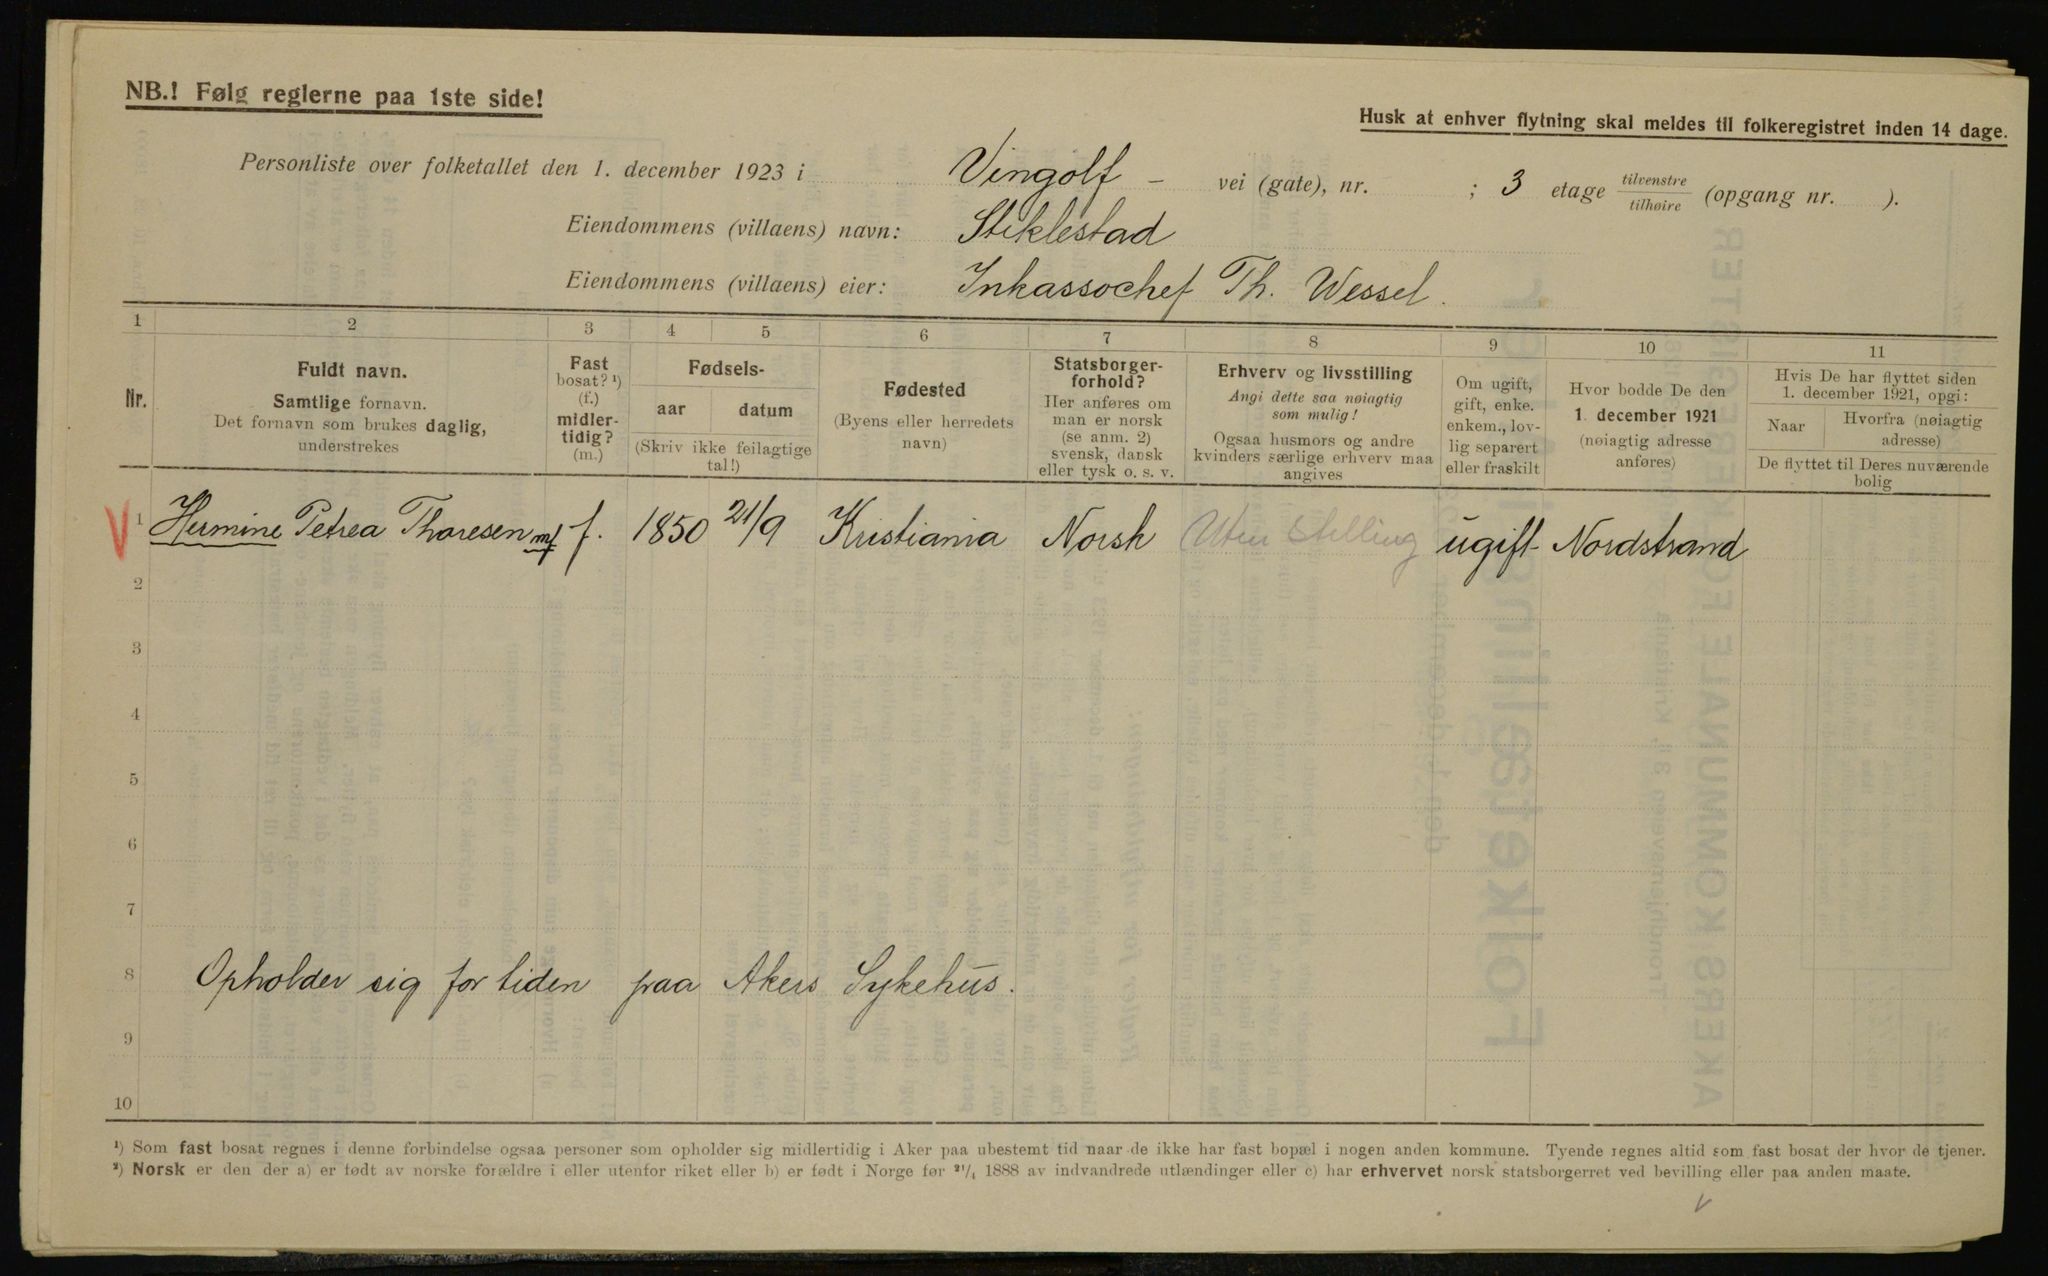 NB.! Følg reglerne paa 1ste side!
Husk at enhver flytning skal meldes til folkeregistret inden 14 dage.
Personliste over folketallet den 1. december 1923 i Vingolf - vei (gate), nr. ; 3 etage tilvenstre / tilhøire (opgang nr. ).
Eiendommens (villaens) navn: Stiklestad
Eiendommens (villaens) eier: Inkassochef Th. Wessel.
1 2 3 4 5 6 7 8 9 10 11
Nr.
Fuldt navn.
Samtlige fornavn.
Det fornavn som brukes daglig,
understrekes
Fast
bosat? ¹)
(f.)
midler-
tidig?
(m.)
Fødsels-
aar datum
(Skriv ikke feilagtige
tal!)
Fødested
(Byens eller herredets
navn)
Statsborger-
forhold?
Her anføres om
man er norsk
(se anm. 2)
svensk, dansk
eller tysk o. s. v.
Erhverv og livsstilling
Angi dette saa nøiagtig
som mulig!
Ogsaa husmors og andre
kvinders særlige erhverv maa
angives
Om ugift,
gift, enke.
enkem., lov-
lig separert
eller fraskilt
Hvor bodde De den
1. december 1921
(nøiagtig adresse
anføres)
Hvis De har flyttet siden
1. december 1921, opgi:
Naar Hvorfra (nøiagtig
adresse)
De flyttet til Deres nuværende
bolig
V 1 Hermine Petrea Thoresen f. 1850 21/9 Kristiania Norsk Uten Stilling ugift Nordstrand
2
3
4
5
6
7
8 Opholder sig for tiden paa Akers Sykehus.
9
10
¹) Som fast bosat regnes i denne forbindelse ogsaa personer som opholder sig midlertidig i Aker paa ubestemt tid naar de ikke har fast bopæl i nogen anden kommune. Tyende regnes altid som fast bosat der hvor de tjener.
²) Norsk er den der a) er født av norske forældre i eller utenfor riket eller b) er født i Norge før ²¹/₁ 1888 av indvandrede utlændinger eller c) har erhvervet norsk statsborgerret ved bevilling eller paa anden maate.